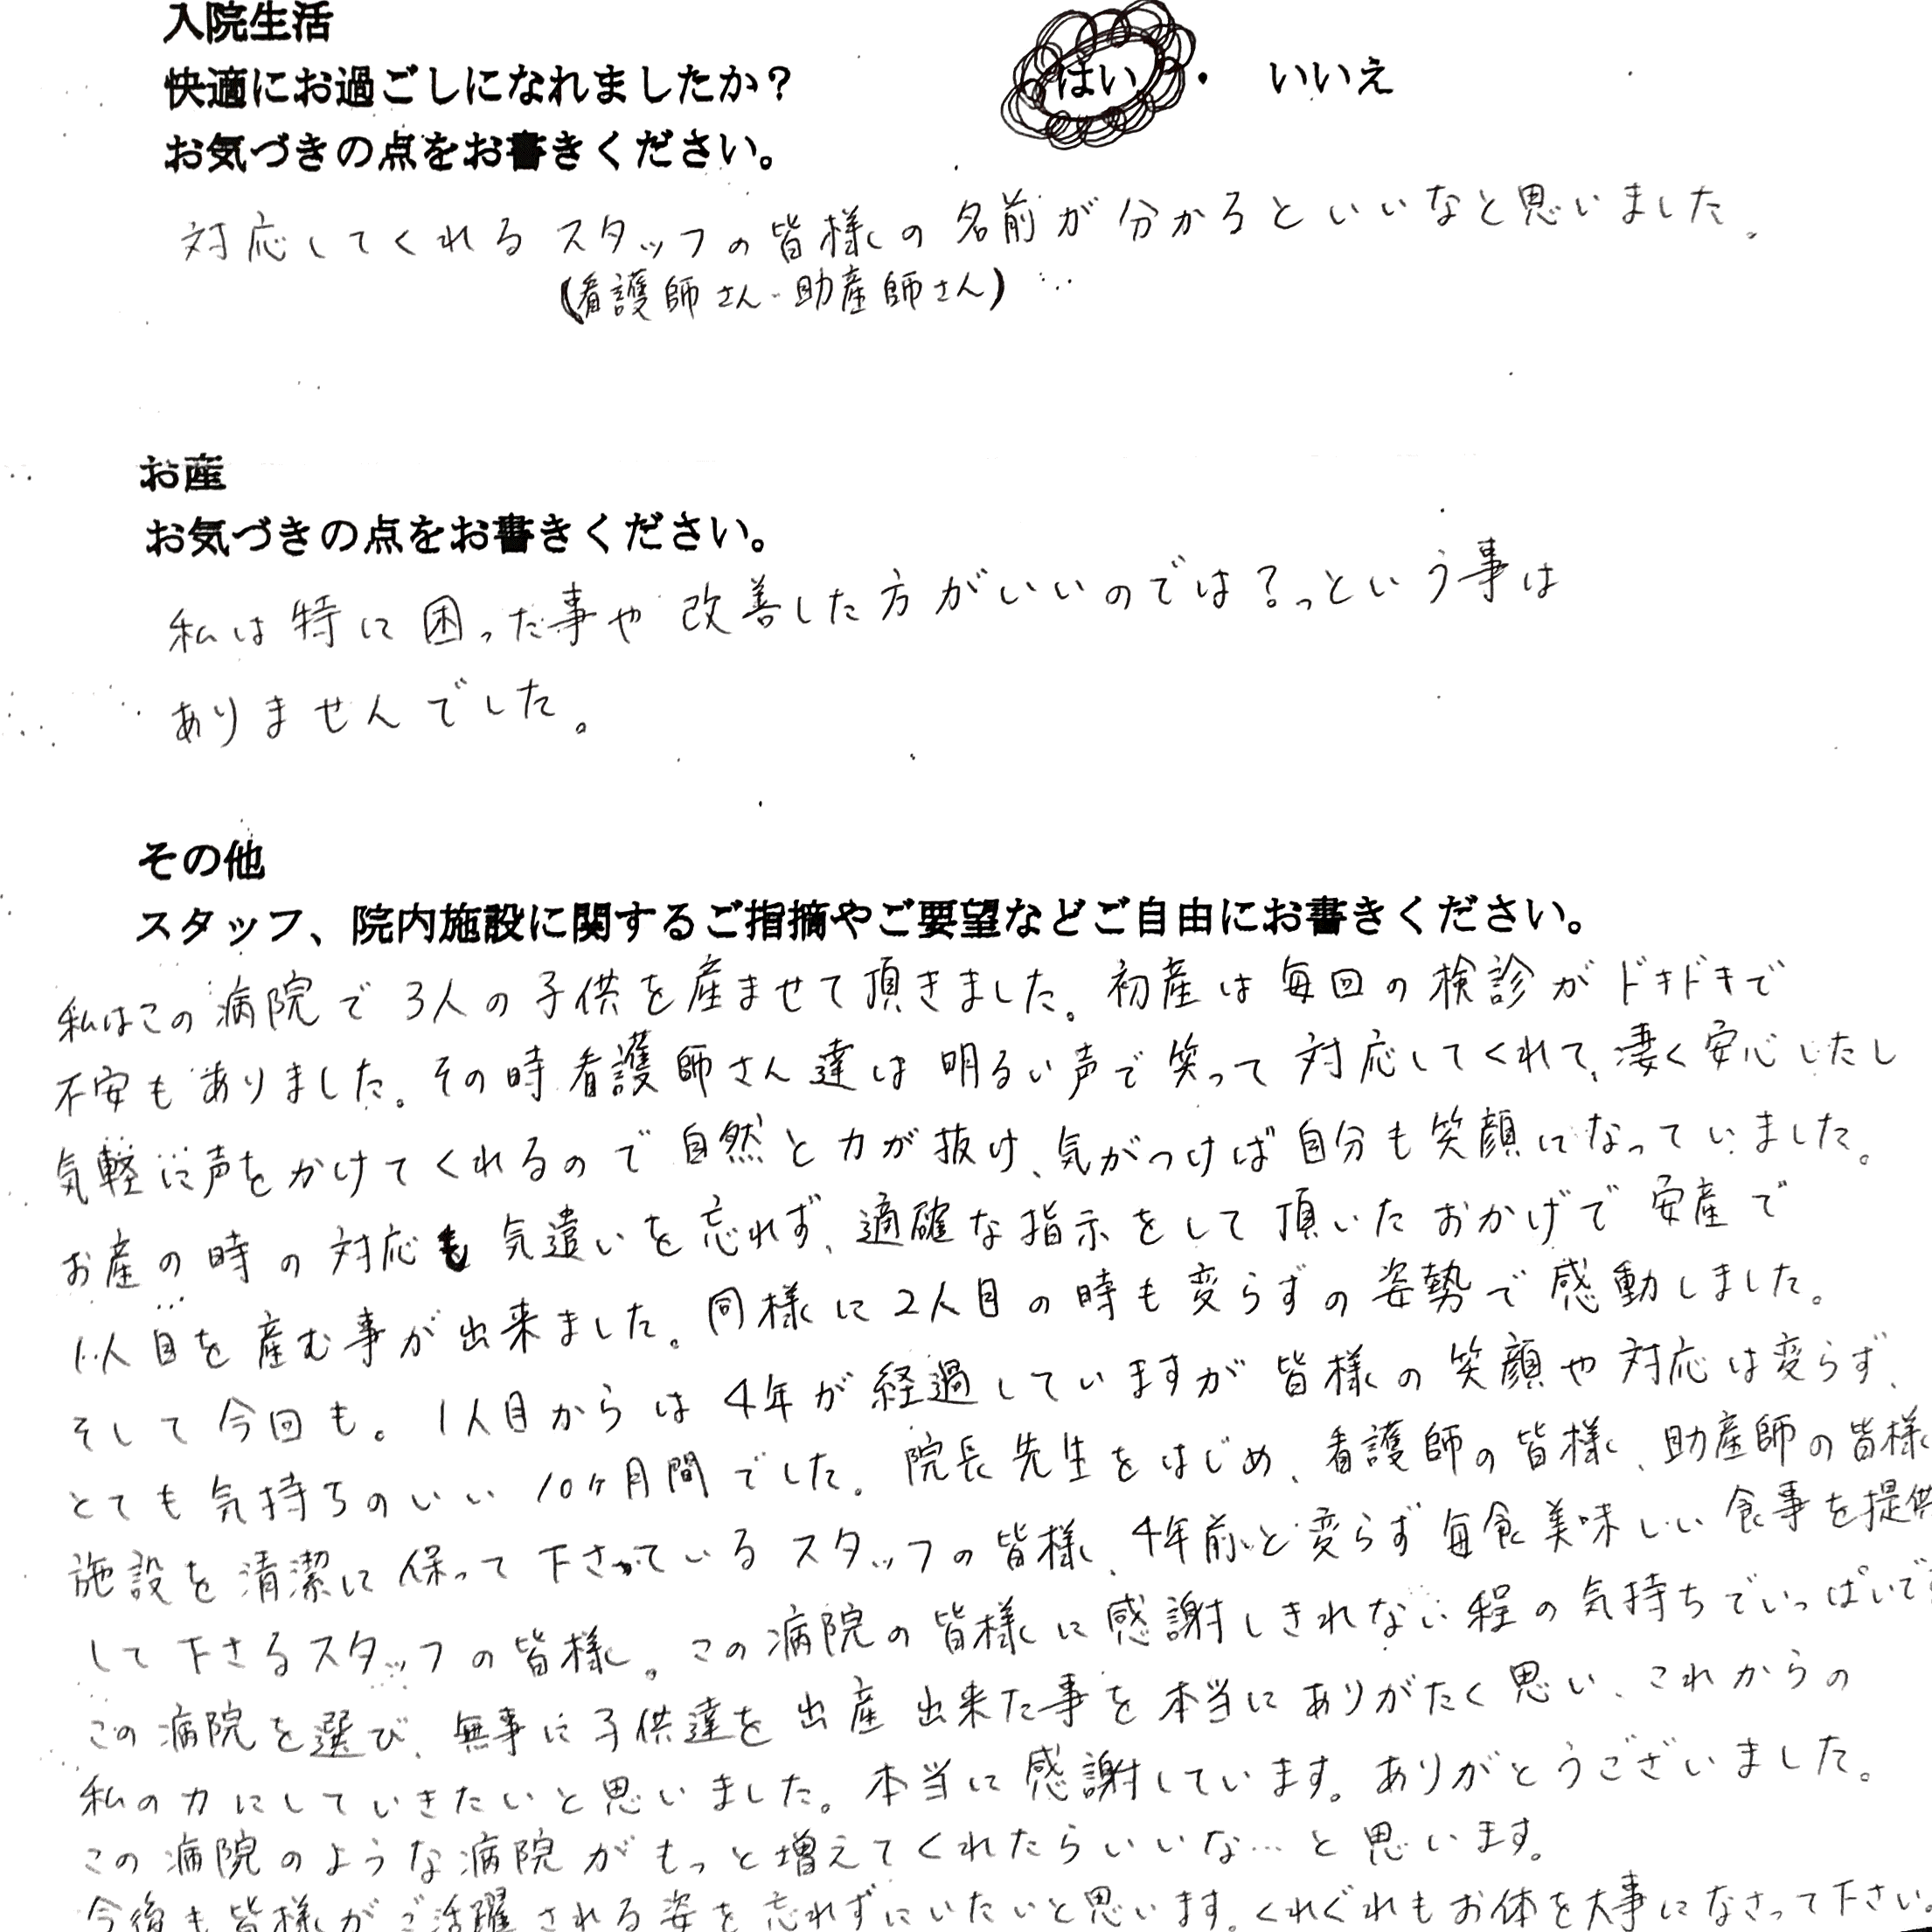 入院生活
快適にお過ごしになれましたか？ はい ・ いいえ
お気づきの点をお書きください。
対応してくれるスタッフの皆様の名前が分かるといいなと思いました。
(看護師さん・助産師さん)
お産
お気づきの点をお書きください。
私は特に困った事や改善した方がいいのでは？っという事は
ありませんでした。
その他
スタッフ、院内施設に関するご指摘やご要望などご自由にお書きください。
私はこの病院で3人の子供を産ませて頂きました。初産は毎回の検診がドキドキで
不安もありました。その時看護師さん達は明るい声で笑って対応してくれて、凄く安心したし
気軽に声をかけてくれるので自然と力が抜け、気がつけば自分も笑顔になっていました。
お産の時の対応も気遣いを忘れず、適確な指示をして頂いたおかげで安産で
1人目を産む事が出来ました。同様に2人目の時も変らずの姿勢で感動しました。
そして今回も。1人目からは4年が経過していますが皆様の笑顔や対応は変らず、
とても気持ちのいい10ヶ月間でした。院長先生をはじめ、看護師の皆様、助産師の皆様
施設を清潔に保って下さっているスタッフの皆様、4年前と変らず毎食美味しい食事を提供
して下さるスタッフの皆様。この病院の皆様に感謝しきれない程の気持ちでいっぱいで
この病院を選び、無事に子供達を出産出来た事を本当にありがたく思い、これからの
私の力にしていきたいと思いました。本当に感謝しています。ありがとうございました。
この病院のような病院がもっと増えてくれたらいいな…と思います。
今後も皆様がご活躍される姿を忘れずにいたいと思います。くれぐれもお体を大事になさって下さい